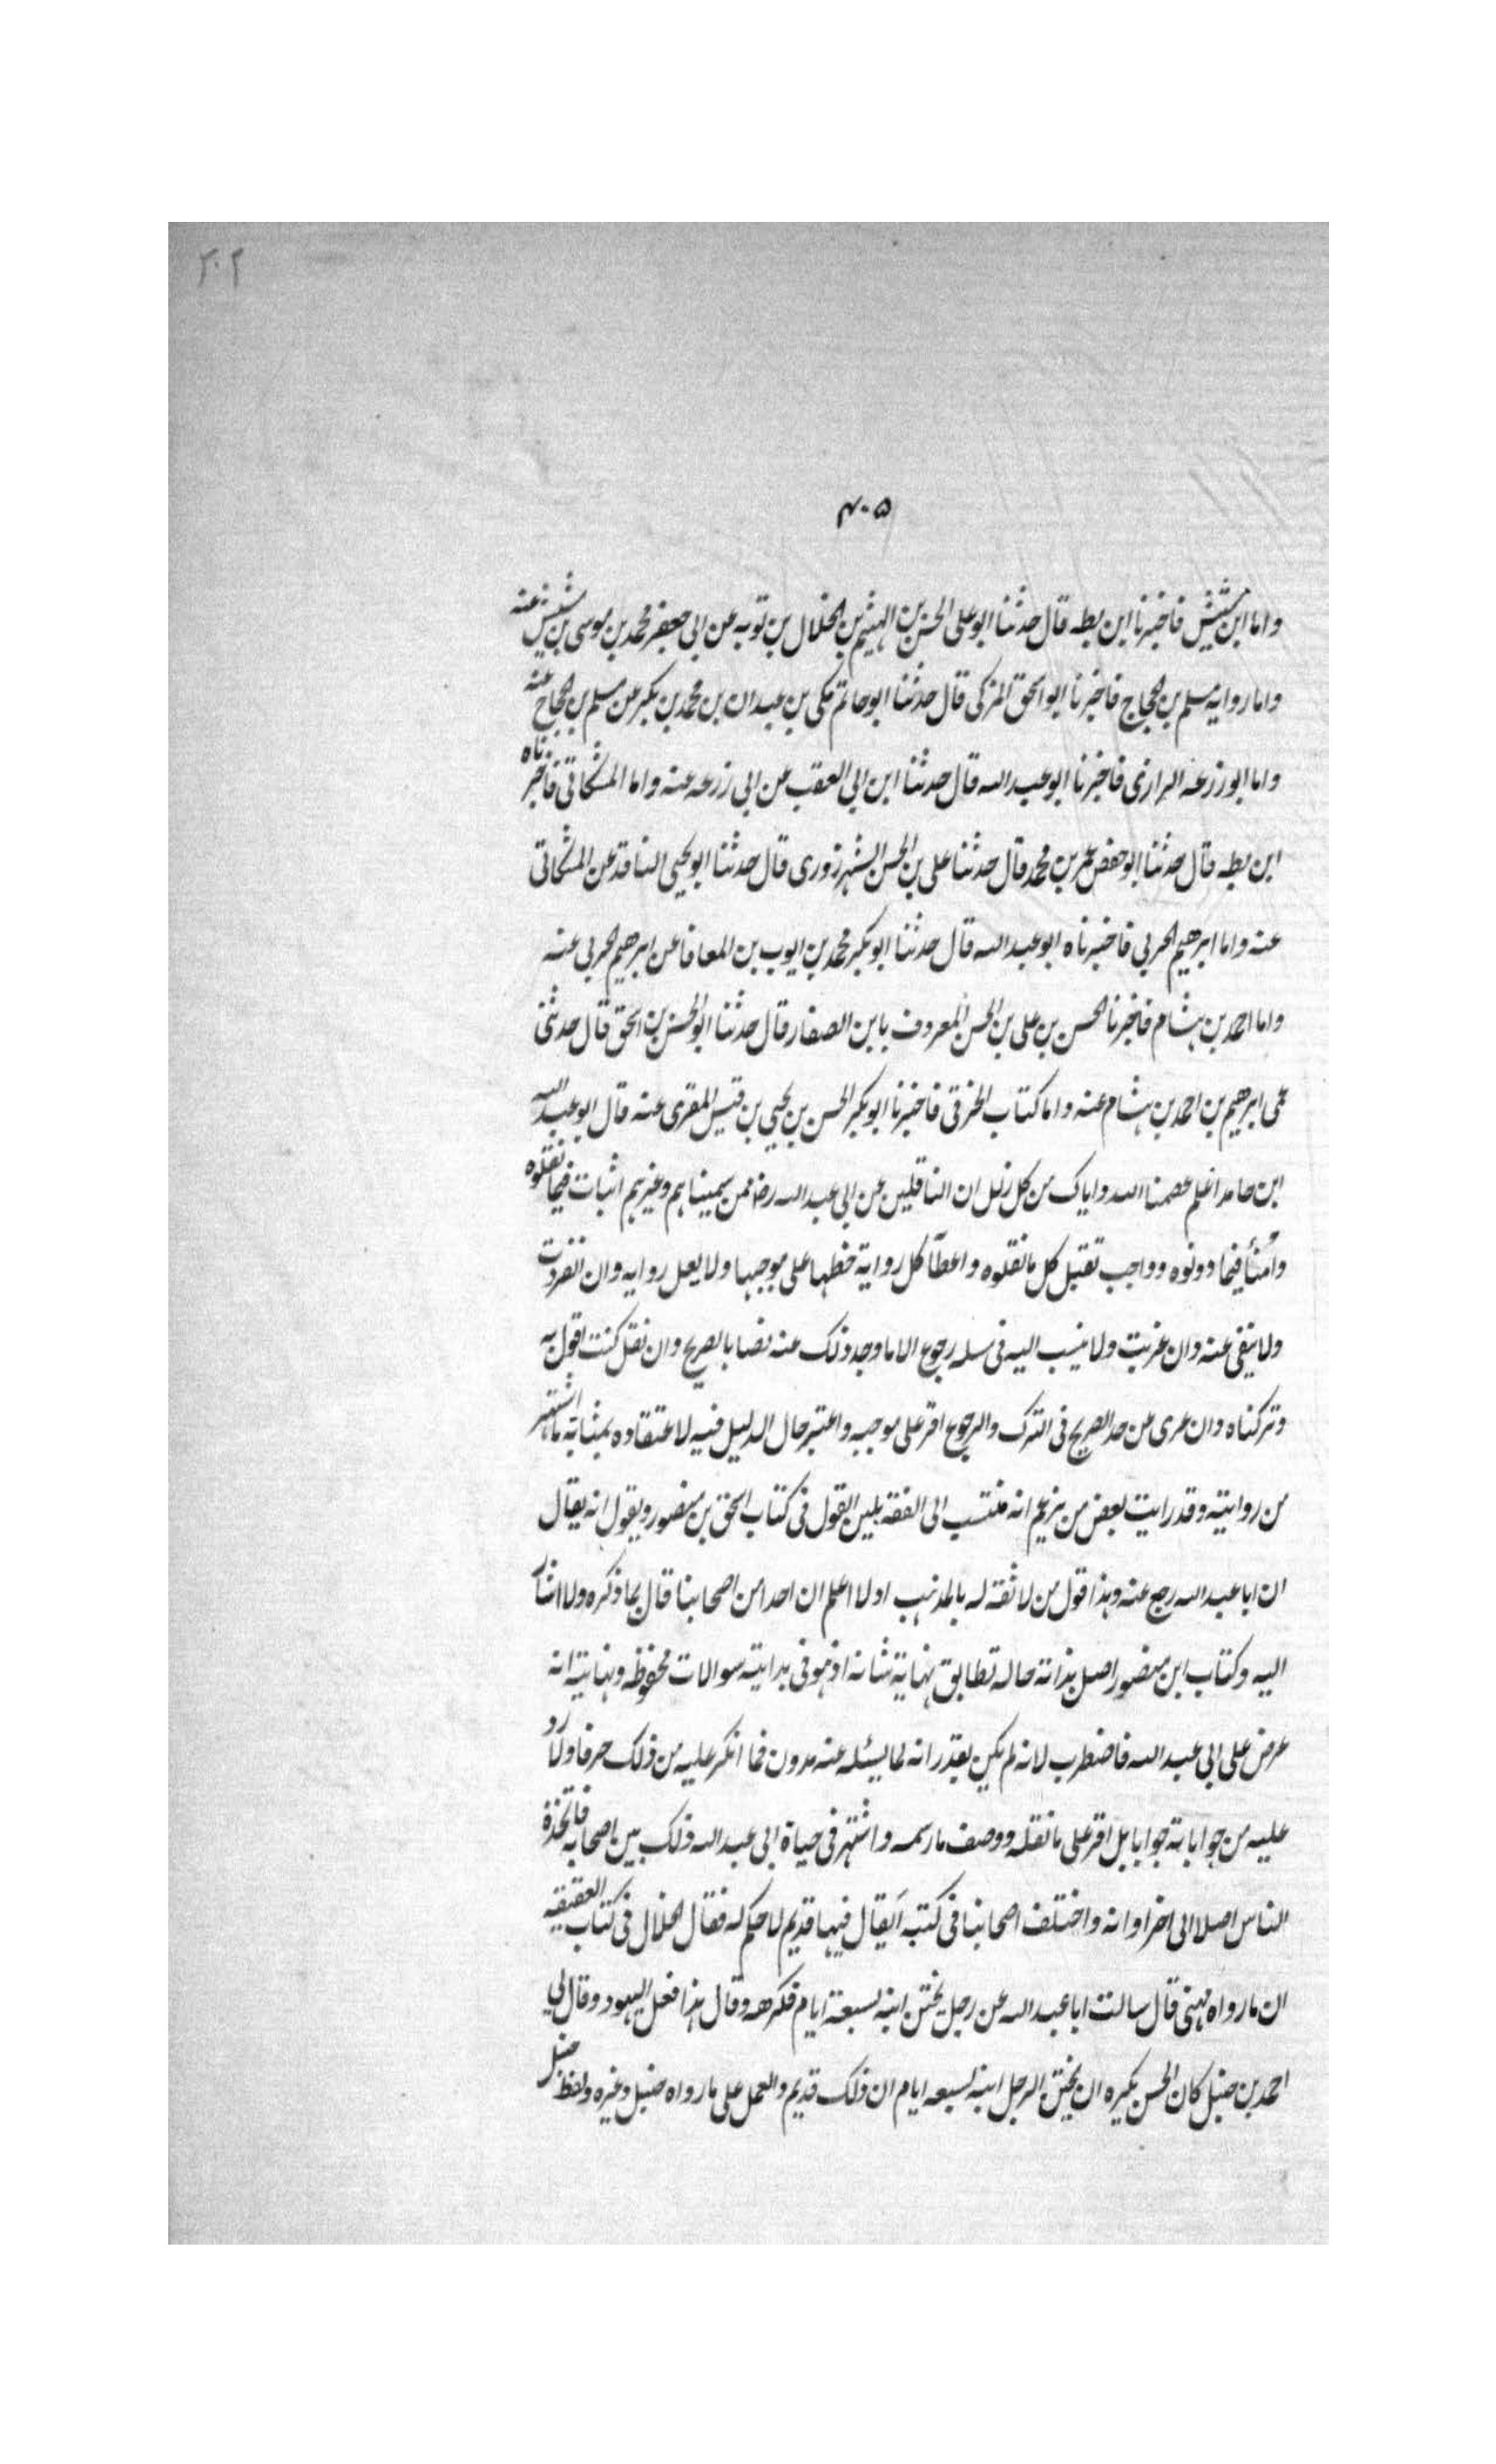 ٢٠٢
٤٠٥
واما ابن مشيش فاخبرنا ابن بطه قال حدثنا ابو على الحسن بن الهيثم بن الخلال بن توبه عن ابى جعفر محمد بن موسى بن مشيش عنه
واما روايه مسلم بن الحجاج فاخبرنا ابو اسحق المزكى قال حدثنا ابو حاتم مكى بن عبدان بن محمد بن بكير عن مسلم بن الحجاج عنه
واما ابو زرعه الرازى فاخبرنا ابو عبد الله قال حدثنا ابن ابى العقب عن ابى زرعه عنه واما المشكاتى فاخبرناه
ابن بطه قال حدثنا ابو حفص عمر بن محمد قال حدثنا على بن الحسن الشهرزورى قال حدثنا ابو يحيى الناقد عن المشكاتى
عنه واما ابرهيم الحربى فاخبرناه ابو عبد الله قال حدثنا ابو بكر محمد بن ايوب بن المعافا عن ابرهيم الحربى عنه
واما احمد بن هشام فاخبرنا الحسن بن على بن الحسن المعروف بابن الصفار قال حدثنا ابو الحسن بن اسحق قال حدثنى
عمى ابرهيم بن احمد بن هشام عنه واما كتاب الخرقى فاخبرنا ابو بكر الحسن بن يحيى بن قيس المقرى عنه قال ابو عبد الله
ابن حامد اعلم عصمنا الله واياك من كل زلل ان الناقلين عن ابى عبد الله رضا ممن سميناهم وغيرهم اثبات فيما نقلوه
وامنأ فيما دونوه وواجب تقبل كل ما نقلوه واعطآ كل رواية حظها على موجبها ولا يعل روايه وان انفردت
ولا ينفى عنه وان غربت ولا ينسب اليه فى مسله رجوع الا ما وجد ذلك عنه نصا بالصريح وان نقل كنت اقول به
وتركناه وان عرى عن حد الصريح فى الترك والرجوع اقر على موجبه واعتبر حال الدليل فيه لاعتقاده بمثابة ما اشتهر
من روايته وقد رايت بعض من يزعم انه منتسب الى الفقه يلين القول فى كتاب اسحق بن منصور ويقول انه يقال
ان ابا عبد الله رجع عنه وهذا قول من لا ثقة له بالمذهب اولا اعلم ان احدا من اصحابنا قال بما ذكره ولا اشار
اليه وكتاب ابن منصور اصل بذاته حاله تطابق نهاية شانه اذ هو فى بدايته سوالات محفوظه ونهايته انه
عرض على ابى عبد الله فاضطرب لانه لم يكن يقدر انه لما يسئله عنه مدون فما انكر عليه من ذلك حرفا ولا رد
عليه من جواباته جوابا بل اقر على ما نقله ووصف ما رسمه واشتهر فى حياة ابى عبد الله ذلك بين اصحابه فاتخذه
الناس اصلا الى اخر اوانه واختلف اصحابنا فى كتبه ايقال فيها قديم لا حكم له فقال الخلال فى كتاب العقيقه
ان ما رواه مهنى قال سالت ابا عبد الله عن رجل يختن ابنه لسبعة ايام فكرهه وقال هذا فعل اليهود وقال لى
احمد بن حنبل كان الحسن يكره ان يختن الرجل ابنه لسبعه ايام ان ذلك قديم والعمل على ما رواه حنبل وغيره ولفظ حنبل